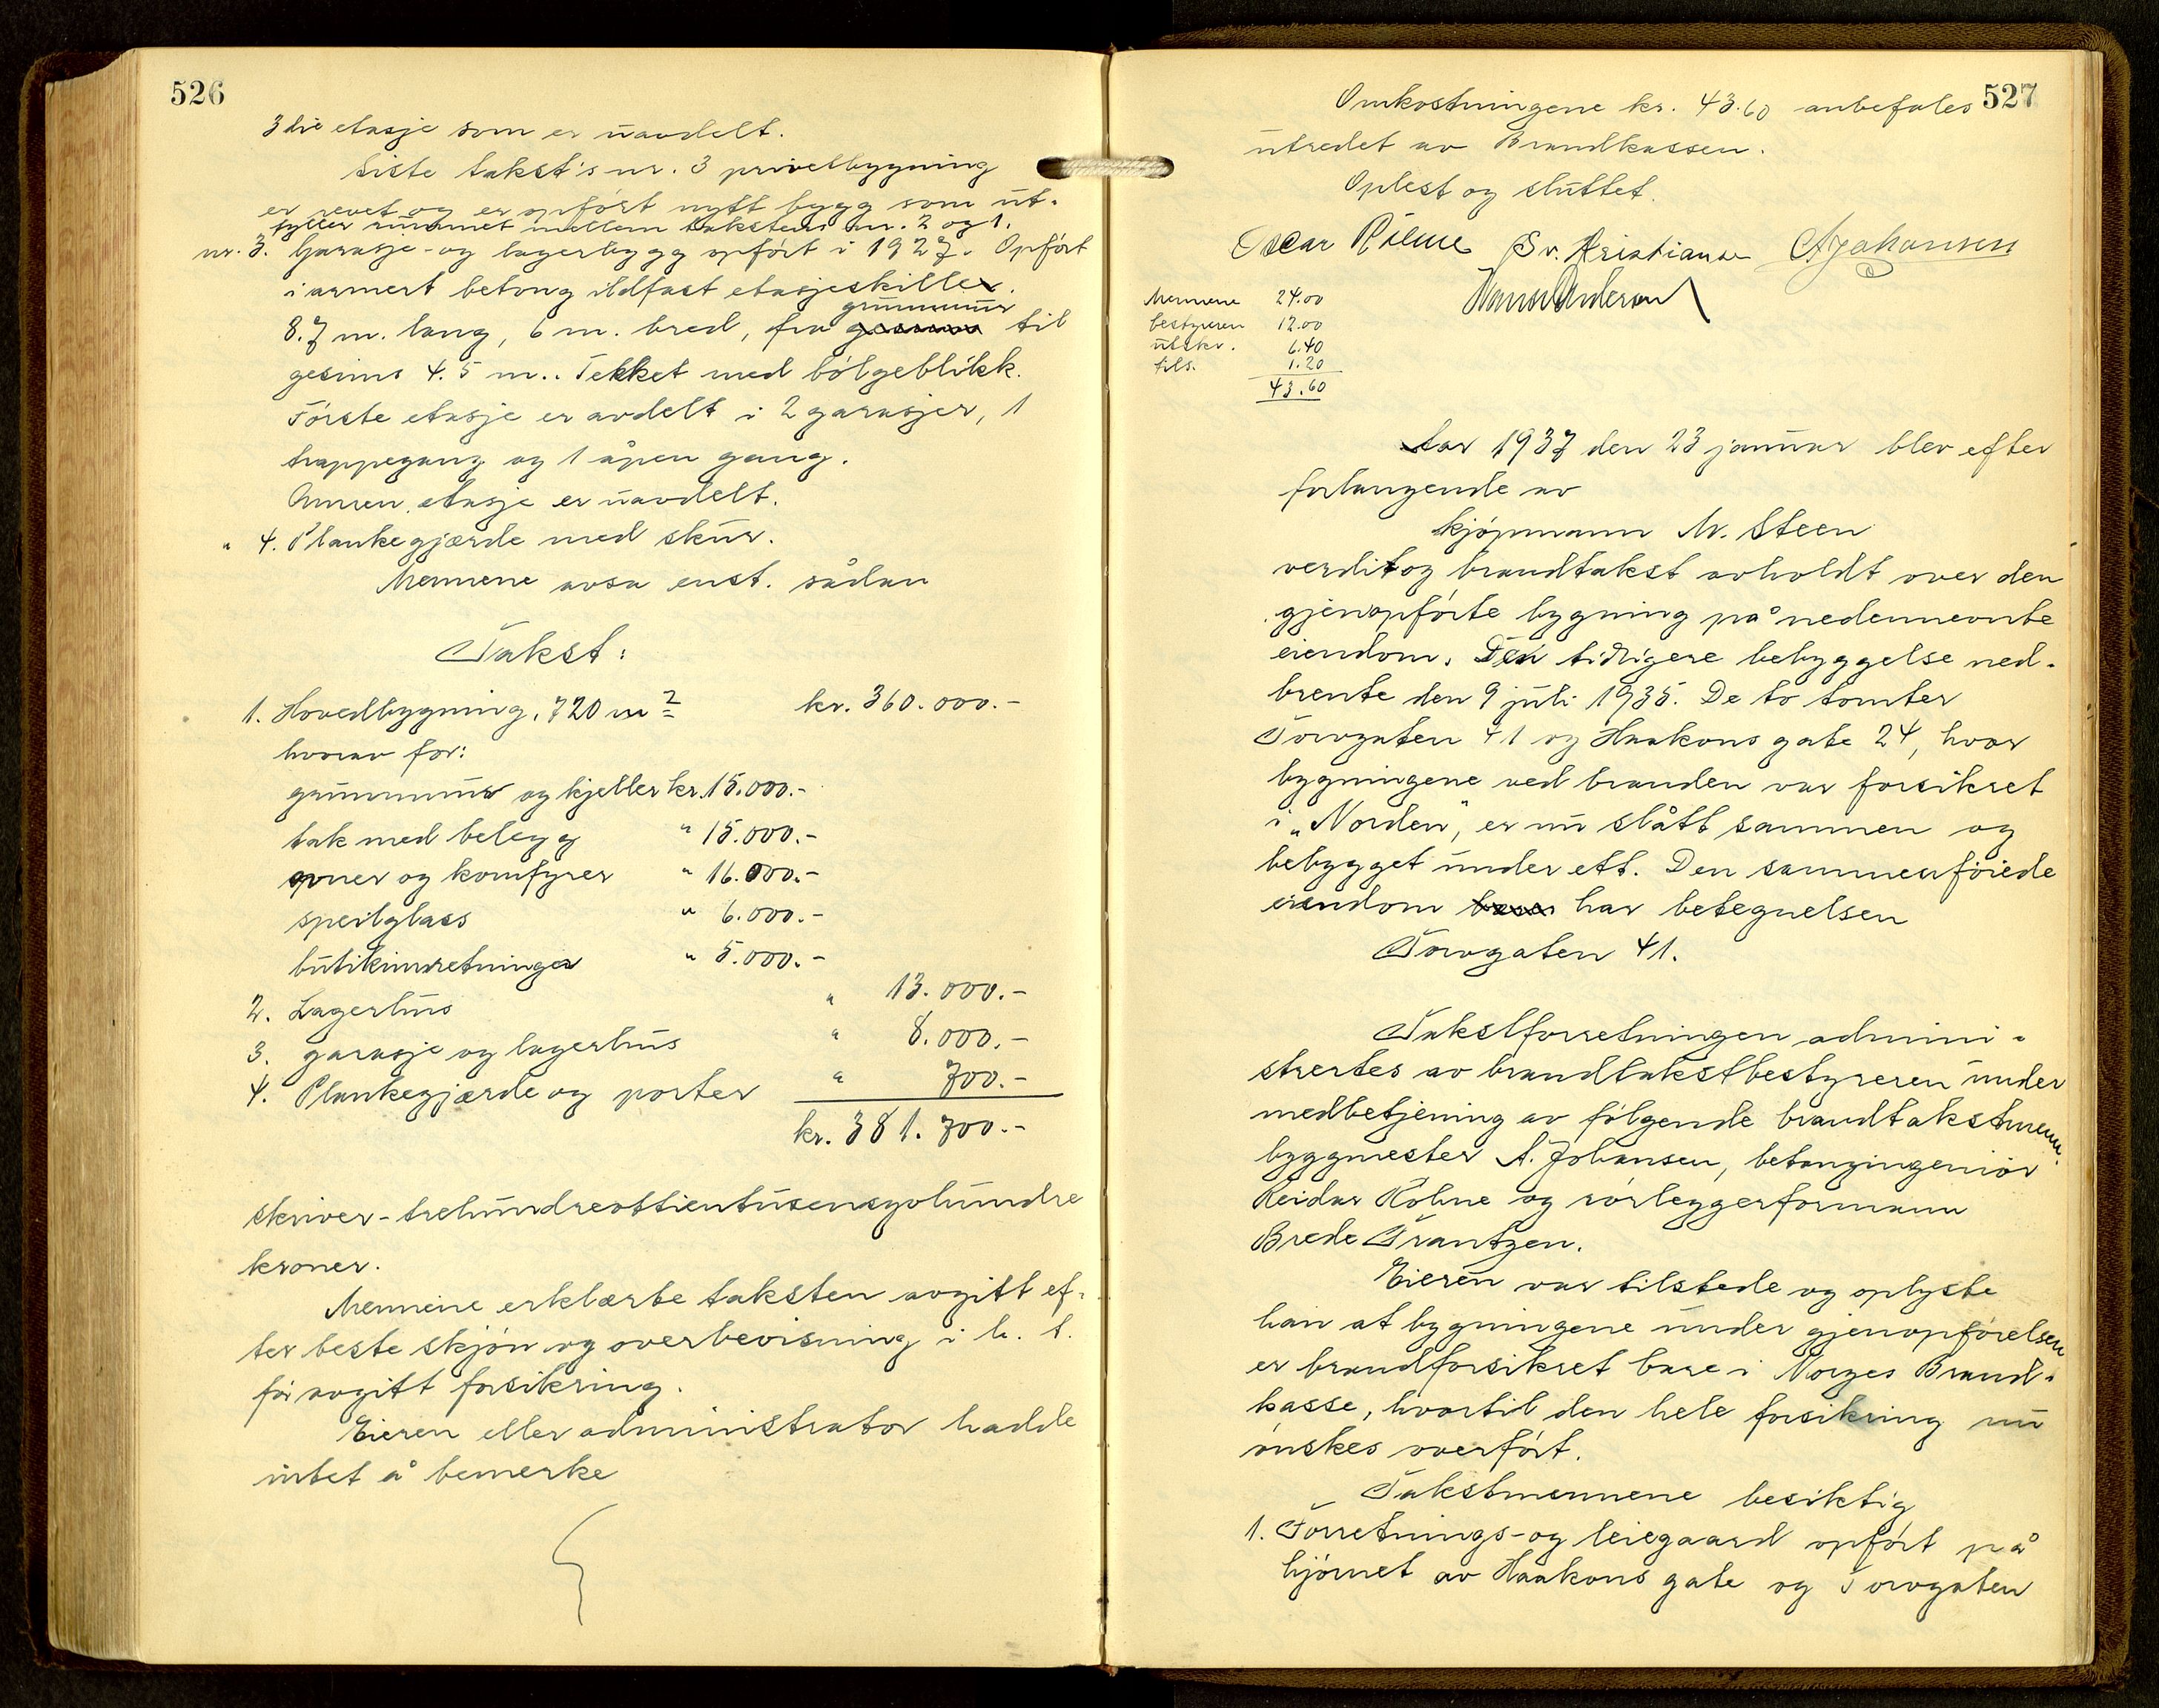 526
3die etasje som er uavdelt.
Siste takst's nr. 3 privetbygning
er revet og er opført nytt bygg som ut-
fyller rummet mellem takstens nr. 2 og 1.
nr. 3. Garasje- og lagerbygg opført i 1927. Opført
i armert betong ildfast etasjeskiller.
grunnmur
8.7 m. lang, 6 m. bred, fra til
gesims 4.5 m.. Tekket med bølgeblikk.
Første etasje er avdelt i 2 garasjer, 1
trappegang og 1 åpen gang.
Annen etasje er uavdelt.
" 4. Plankegjærde med skur.
Mennene avsa enst. sådan
Takst:
1. Hovedbygning, 720 m2 kr. 360.000.-
hvorav for:
grunnmur og kjeller kr. 15.000.-
tak med belegg " 15.000.-
ovner og komfyrer " 16.000.-
speilglass " 6.000.-
butikinnretninger " 5.000.-
2. Lagerhus " 13.000.-
3. garasje og lagerhus " 8.000.-
4. Plankegjærde og porter " 700.-
kr. 381.700.-
skriver - trehundreottientusensyvhundre
kroner.
Mennene erklærte taksten avgitt ef-
ter beste skjøn og overbevisning i h. t.
før avgitt forsikring.
Eieren eller administrator hadde
intet å bemerke
527
Omkostningene kr. 43.60 anbefales
utredet av Brandkassen.
Oplest og sluttet.
Oscar Sv. Kristianse A Johansen
Hans Anderson
Mennene 24.00
bestyreren 12.00
utskr. 6.40
tils. 1.20
43.60
År 1937 den 23 januar blev efter
forlangende av
kjøpmann M. Steen
verdi og brandtakst avholdt over den
gjenopførte bygning på nedennevnte
eiendom. Den tidligere bebyggelse ned-
brente den 9 juli 1935. De to tomter
Torvgaten 41 og Haakons gate 24, hvor
bygningene ved branden var forsikret
i „Norden", er nu slått sammen og
bebygget under ett. Den sammenføiede
eiendom har betegnelsen
Torvgaten 41.
Takstforretningen admini-
strertes av brandtakstbestyreren under
medbetjening av følgende brandtakstmenn:
byggmester A. Johansen, betongingeniør
Reidar Kolme og rørleggerformann
Brede Frantzen.
Eieren var tilstede og oplyste
han at bygningene under gjenopførelsen
er brandforsikret bare i Norges Brand-
kasse, hvortil den hele forsikring nu
ønskes overført.
Takstmennene besiktig
1. Forretnings- og leiegaard opført på
hjørnet av Haakons gate og Torvgaten